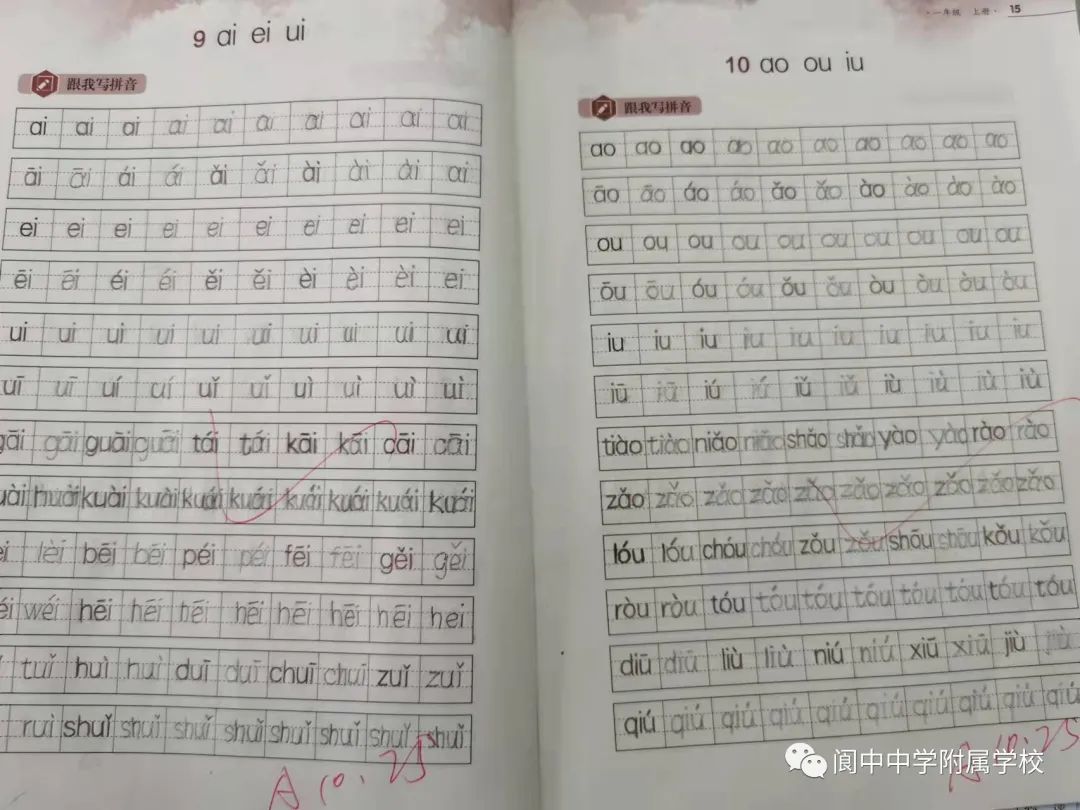 9 ai ei ui
跟我写拼音
ai ai ai ai ai ai ai ai ai ai
āi āi ái ái ǎi ǎi ài ài ài ai
ei ei ei ei ei ei ei ei ei ei
ēi ēi éi éi ěi ěi èi èi èi ei
ui ui ui ui ui ui ui ui ui ui
uī uī uí uí uǐ uǐ uì uì uì uì
gāi guāi guāi tái tái kāi kāi cāi cāi
huài kuài kuài kuái kuái kuái kuái kuái kuái
lèi bēi bēi péi péi fēi fēi gěi gěi
wéi hēi hēi hēi hēi hēi hēi hēi hei
tuǐ huì huì duī duī chuī chuī zuǐ zuǐ
ruì shuǐ shuǐ shuǐ shuǐ shuǐ shuǐ shuǐ shuǐ
A 10.25
·一年级 上册· 15
10 ao ou iu
跟我写拼音
ao ao ao ao ao ao ao ao ao ao
āo āo áo áo ǎo ǎo ào ào ào ào
ou ou ou ou ou ou ou ou ou ou
ōu ōu óu óu ǒu ǒu òu òu òu òu
iu iu iu iu iu iu iu iu iu iu
iū iū iú iú iǔ iǔ iù iù iù iù
tiào tiào niǎo niǎo shǎo shǎo yào yào rào rào
zǎo zǎo zǎo zǎo zǎo zǎo zǎo zǎo zǎo zǎo
lóu lóu chóu chóu zǒu zǒu shōu shōu kǒu kǒu
ròu ròu tóu tóu tóu tóu tóu tóu tóu tóu
diū diū liù liù niú niú xiū xiū jiù jiù
qiú qiú qiú qiú qiú qiú qiú qiú qiú qiú
A 10.25
阆中中学附属学校